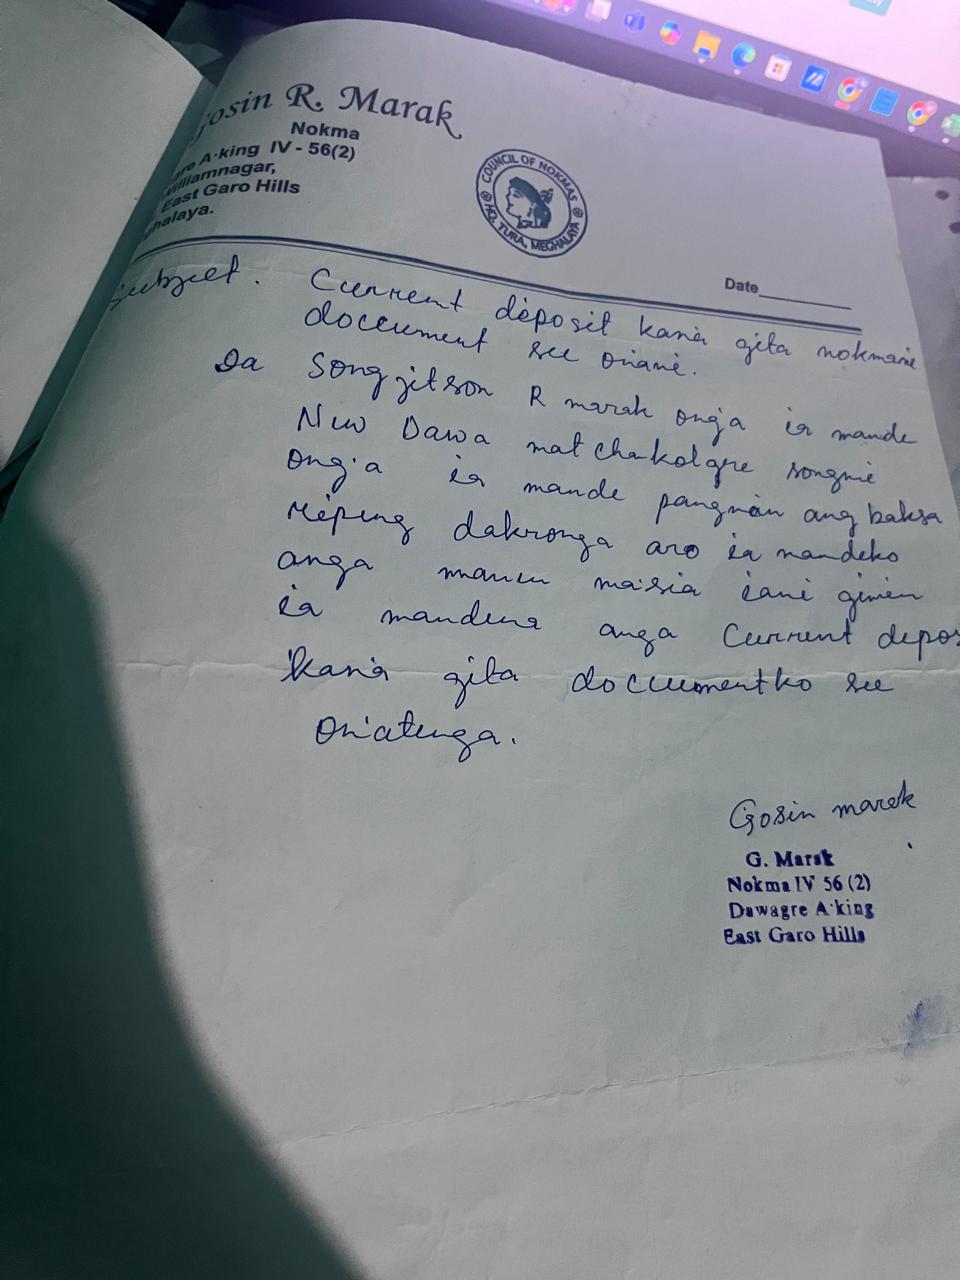 osin R. Marak
Nokma
A·king IV - 56(2)
illiamnagar,
East Garo Hills
halaya.
COUNCIL OF NOKMAS
HQ. TURA, MEGHALAYA
Date
Subject. Current deposit kana gita nokmani
document see onani.
Da Songjitson R marak onga ia mande
New Dawa matchakolgre songni
ong'a ia mande pangnan ang baksa
reping dakronga aro ia mandeko
anga manen masia iani gimin
ia mandena anga Current depos
kana gita documentko see
on'atenga.
Gosin marak
G. Marak
Nokma IV 56 (2)
Dawagre A·king
East Garo Hills